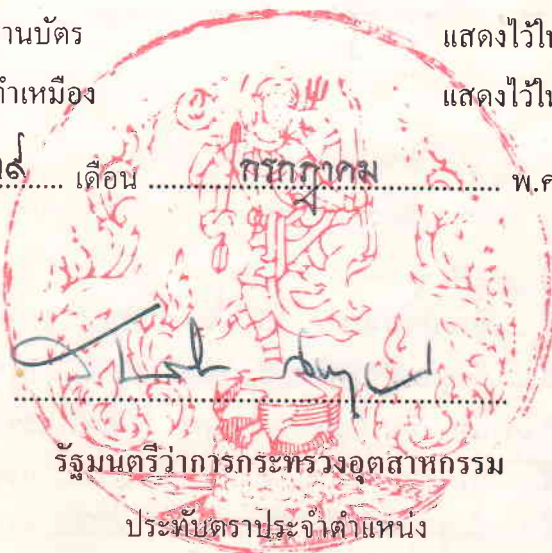 านบัตร แสดงไว้ใ
ำเหมือง แสดงไว้ใ
๙ เดือน กรกฎาคม พ.ศ
รัฐมนตรีว่าการกระทรวงอุตสาหกรรม
ประทับตราประจำตำแหน่ง